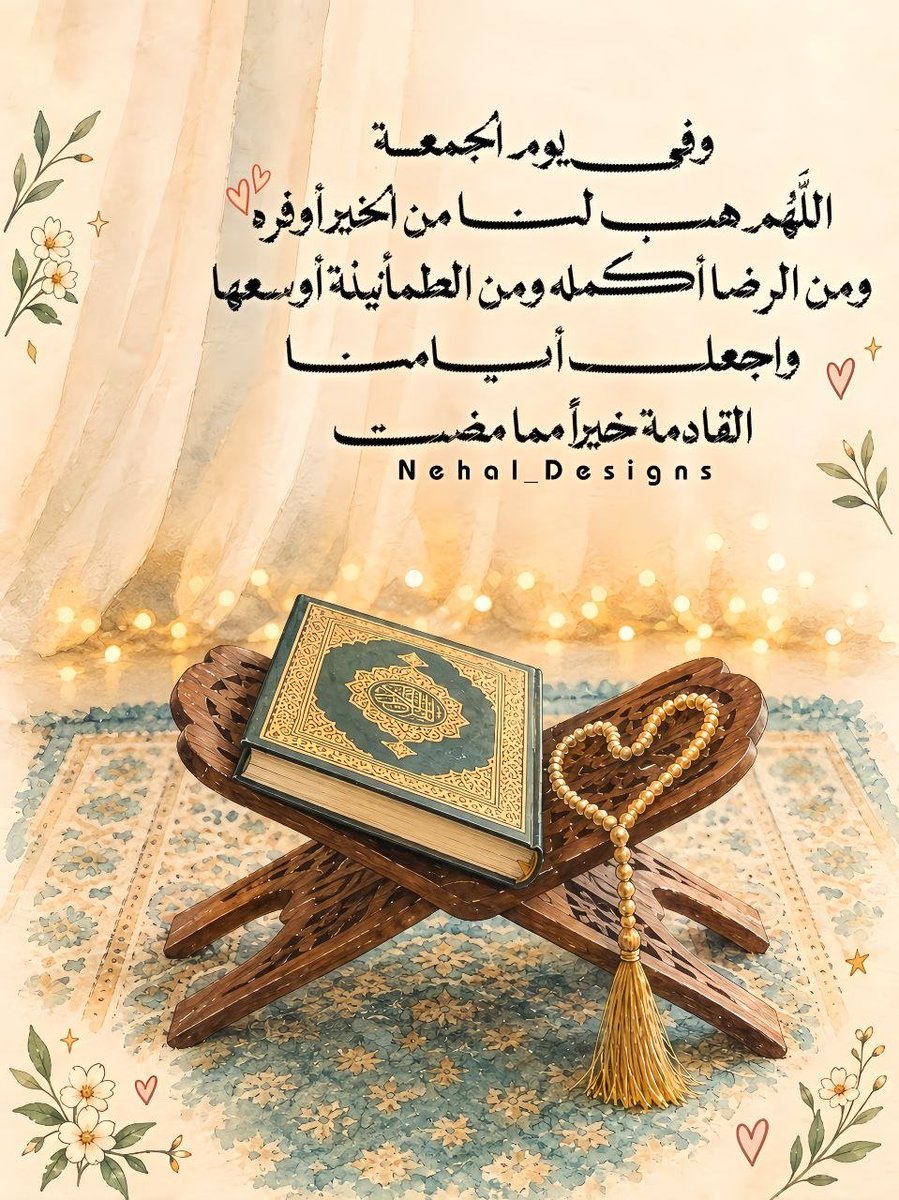 وفي يوم الجمعة
اللَّهُم هب لنا من الخير أوفره
ومن الرضا أكمله ومن الطمأنينة أوسعها
واجعل أيامنا
القادمة خيراً مما مضت
Nehal_Designs